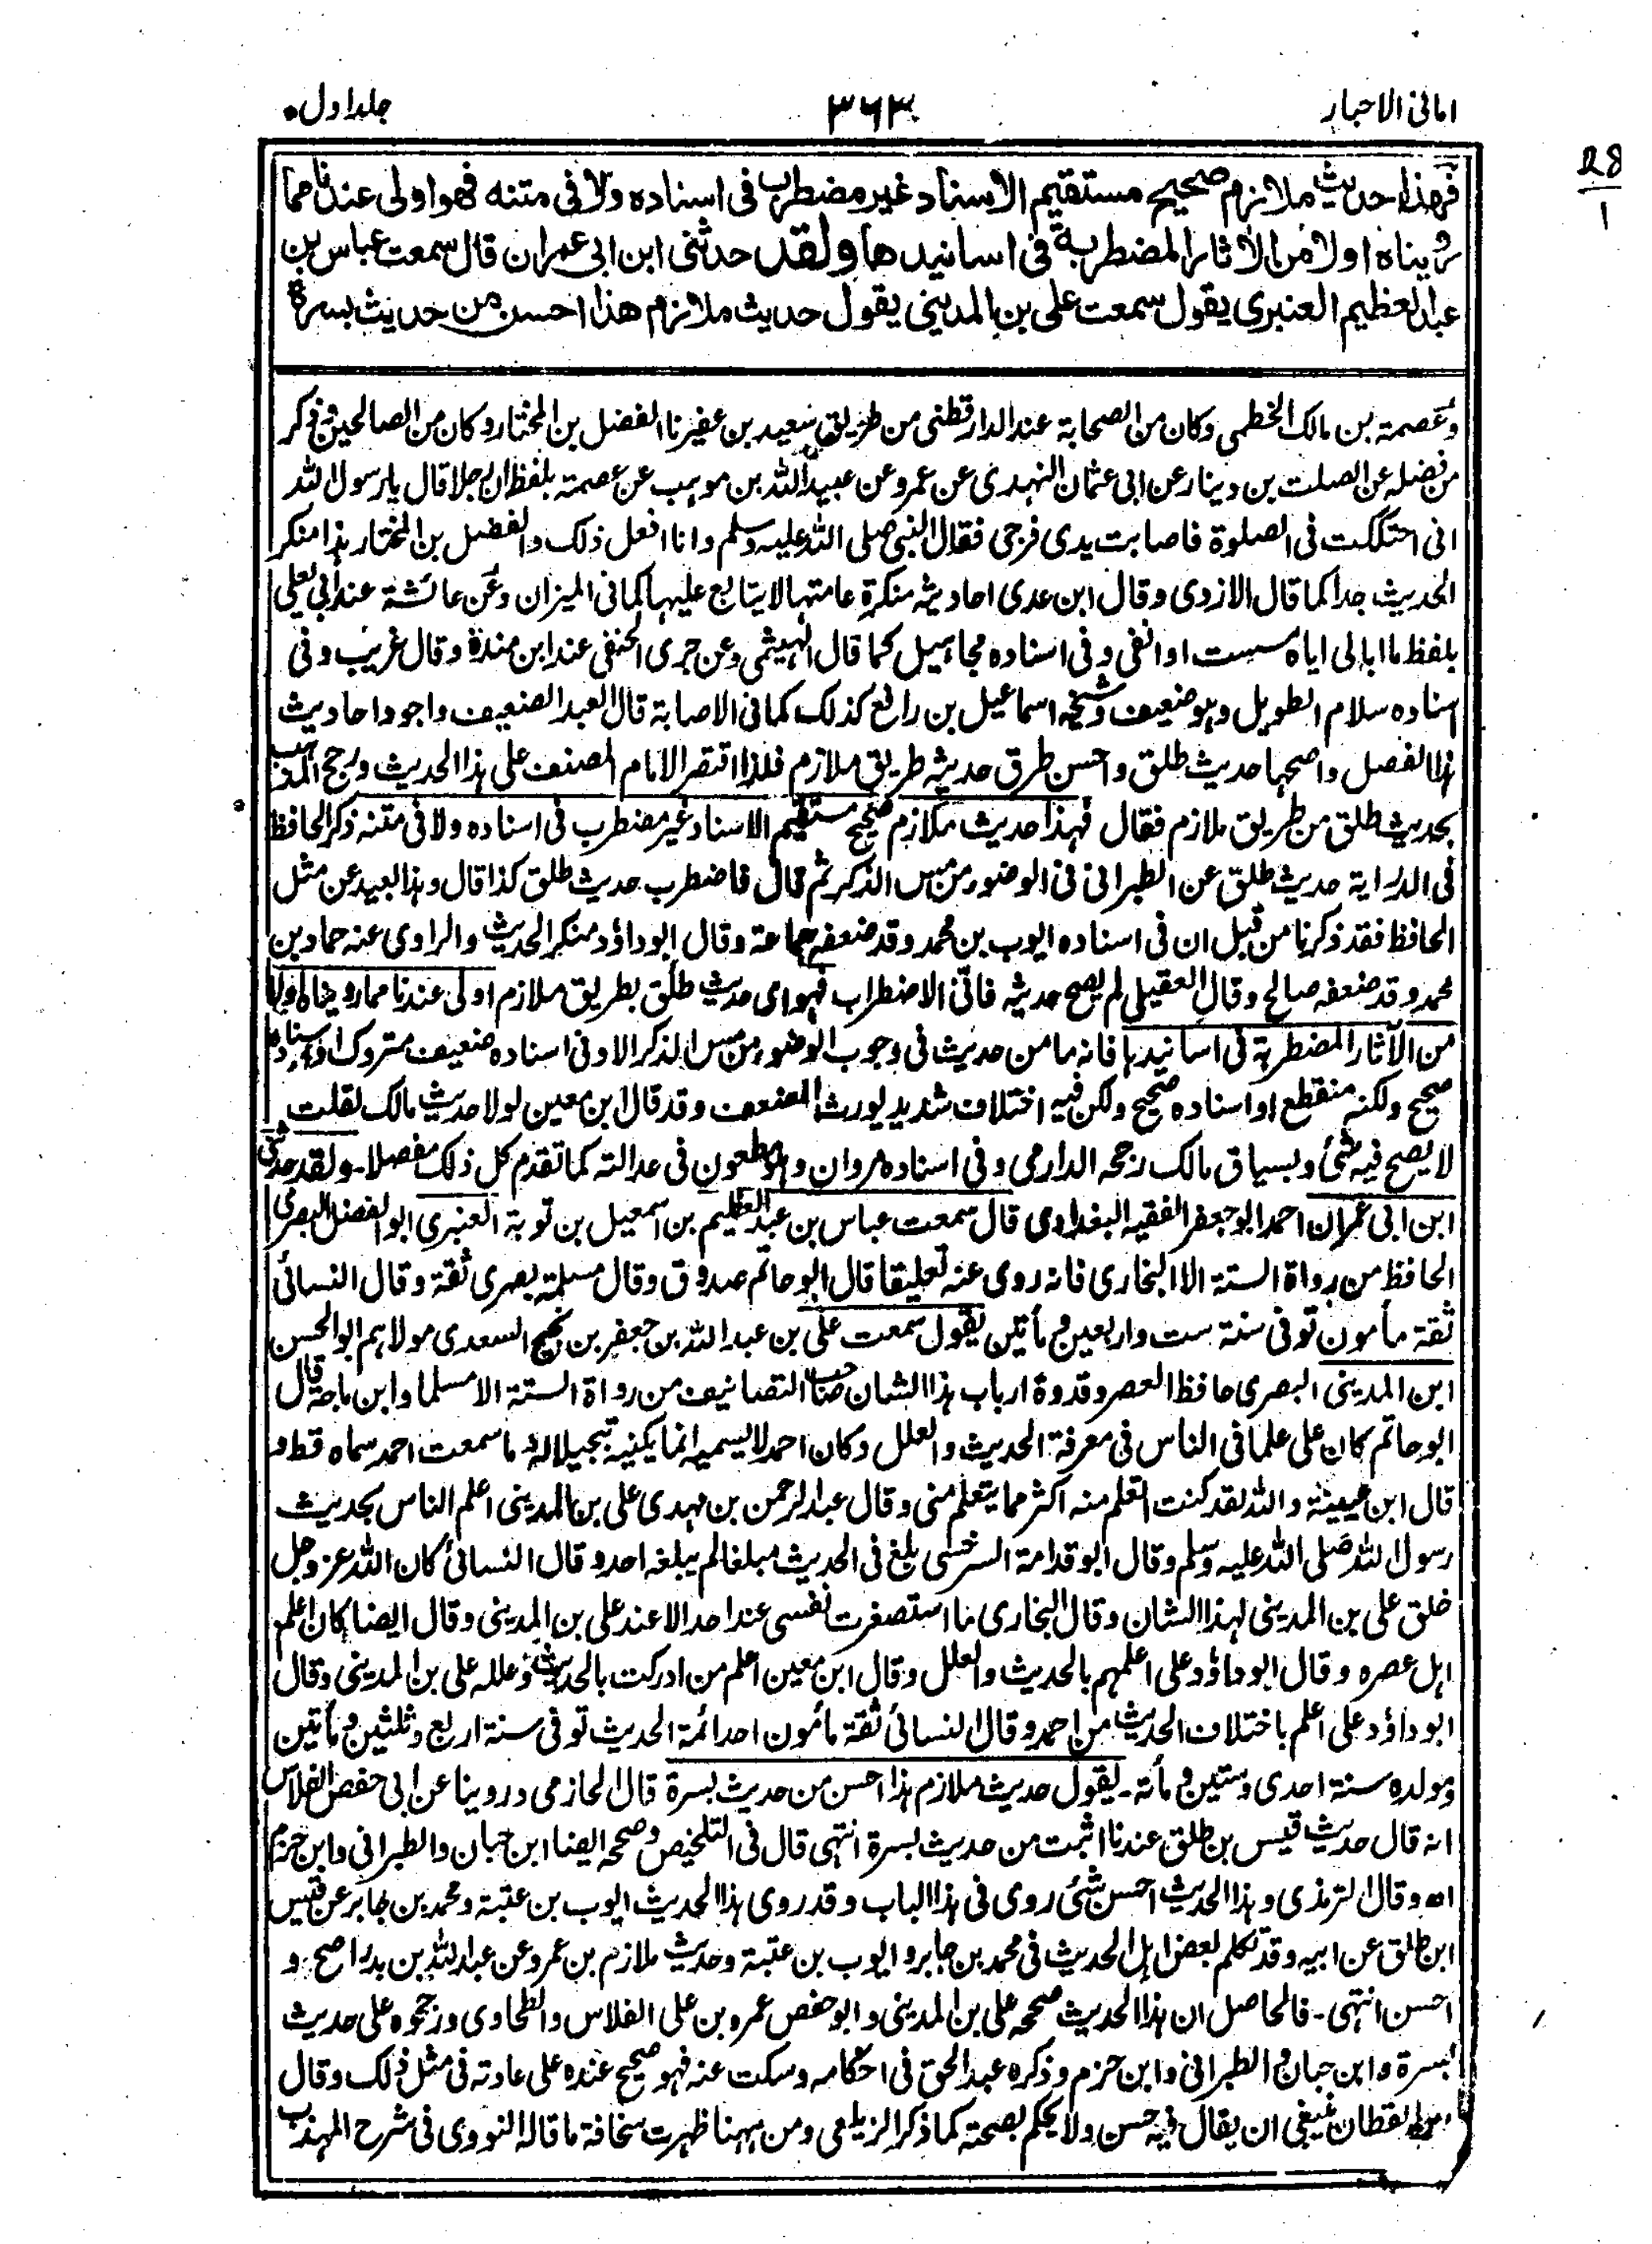 امانی الاحبار ۳۶۳ جلد اول
28
1
فهذا حديث ملازم صحيح مستقيم الاسناد غير مضطرب فى اسناده ولا فى متنه فهو اولى عندنا مما
رويناه اولا من الأثار المضطربة فى اسانيدها ولقد حدثنى ابن ابى عمران قال سمعت عباس بن
عبد العظيم العنبرى يقول سمعت على بن المدينى يقول حديث ملازم هذا احسن من حديث بسرة
وعصمة بن مالك الخطمى وكان من الصحابة عند الدارقطنى من طريق سعيد بن عفير نا الفضل بن المختار وكان من الصالحين وذكر
من فضله عن الصلت بن دينار عن ابى عثمان النهدى عن عمر وعن عبيد الله بن موهب عن عصمة بلفظ ان رجلا قال يا رسول الله
انى احتككت فى الصلوة فاصابت يدى فرجى فقال النبى صلى الله عليه وسلم وانا افعل ذلك والفضل بن المختار هذا منكر
الحديث جدا كما قال الازدى وقال ابن عدى احاديثه منكرة عامتها لا يتابع عليها كما فى الميزان وعن عائشة عند ابى يعلى
بلفظ ما ابالى اياه مسست او انفى وفى اسناده مجاهيل كما قال الهيثمى وعن جرى الحنفى عند ابن مندة وقال غريب وفى
اسناده سلام الطويل وهو ضعيف وشيخه اسماعيل بن رافع كذلك كما فى الاصابة قال العبد الضعيف واجود احاديث
هذا الفصل واصحها حديث طلق واحسن طرق حديثه طريق ملازم فلذا اقتصر الامام المصنف على هذا الحديث ورجح المذهب
بحديث طلق من طريق ملازم فقال فهذا حديث ملازم صحيح مستقيم الاسناد غير مضطرب فى اسناده ولا فى متنه ذكر الحافظ
فى الدراية حديث طلق عن الطبرانى فى الوضوء من مس الذكر ثم قال فاضطرب حديث طلق كذا قال وهذا بعيد عن مثل
الحافظ فقد ذكرنا من قبل ان فى اسناده ايوب بن محمد وقد ضعفه جماعة وقال ابو داؤد منكر الحديث والراوى عنه حماد بن
محمد وقد ضعفه صالح وقال العقيلى لم يصح حديثه فانّى الاضطراب فهو اى حديث طلق بطريق ملازم اولى عندنا مما رويناه اولا
من الآثار المضطربة فى اسانيدها فانه ما من حديث فى وجوب الوضوء من مس الذكر الا وفى اسناده ضعيف متروك او اسناده
صحيح ولكنه منقطع او اسناده صحيح ولكن فيه اختلاف شديد يورث الضعف وقد قال ابن معين لولا حديث مالك لقلت
لا يصح فيه شئ وبسياق مالك رجحه الدارمى وفى اسناده مروان وهو مطعون فى عدالته كما تقدم كل ذلك مفصلا۔ ولقد حدثنى
ابن ابى عمران احمد ابو جعفر الفقيه البغدادى قال سمعت عباس بن عبد العظيم بن اسمعيل بن توبة العنبرى ابو الفضل البصرى
الحافظ من رواة الستة الا البخارى فانه روى عنه تعليقا قال ابو حاتم صدوق وقال مسلمة بصرى ثقة وقال النسائى
ثقة مأمون توفى سنة ست واربعين ومأتين يقول سمعت على بن عبد الله بن جعفر بن نجيح السعدى مولاهم ابو الحسن
ابن المدينى البصرى حافظ العصر وقدوة ارباب هذا الشان صاحب التصانيف من رواة الستة الا مسلما وابن ماجة قال
ابو حاتم كان على علما فى الناس فى معرفة الحديث والعلل وكان احمد لا يسميه انما يكنيه تبجيلا له وما سمعت احمد سماه قط و
قال ابن عيينة والله لقد كنت اتعلم منه اكثر مما يتعلم منى وقال عبد الرحمن بن مهدى على بن المدينى اعلم الناس بحديث
رسول الله صلى الله عليه وسلم وقال ابو قدامة السرخسى بلغ فى الحديث مبلغا لم يبلغه احد وقال النسائى كان الله عز وجل
خلق على بن المدينى لهذا الشان وقال البخارى ما استصغرت نفسى عند احد الا عند على بن المدينى وقال ايضا كان اعلم
اهل عصره وقال ابو داؤد على اعلمهم بالحديث والعلل وقال ابن معين اعلم من ادركت بالحديث وعلله على بن المدينى وقال
ابو داؤد على اعلم باختلاف الحديث من احمد وقال النسائى ثقة مأمون احد ائمة الحديث توفى سنة اربع وثلثين ومأتين
ومولده سنة احدى وستين ومأئة۔ يقول حديث ملازم هذا احسن من حديث بسرة قال الحازمى وروينا عن ابى حفص الفلاس
انه قال حديث قيس بن طلق عندنا اثبت من حديث بسرة انتهى قال فى التلخيص وصححه ايضا ابن حبان والطبرانى وابن حزم
اھ وقال الترمذى وهذا الحديث احسن شئ روى فى هذا الباب وقد روى هذا الحديث ايوب بن عتبة ومحمد بن جابر عن قيس
ابن طلق عن ابيه وقد تكلم بعض اهل الحديث فى محمد بن جابر وايوب بن عتبة وحديث ملازم بن عمرو عن عبد الله بن بدر اصح و
احسن انتهى۔ فالحاصل ان هذا الحديث صححه على بن المدينى وابو حفص عمرو بن على الفلاس والطحاوى ورجحوه على حديث
بسرة وابن حبان والطبرانى وابن حزم وذكره عبد الحق فى احكامه وسكت عنه فهو صحيح عنده على عادته فى مثل ذلك وقال
ابن القطان ينبغى ان يقال فيه حسن ولا يحكم بصحته كما ذكر الزيلعى ومن ههنا ظهرت سخافة ما قاله النووى فى شرح المهذب